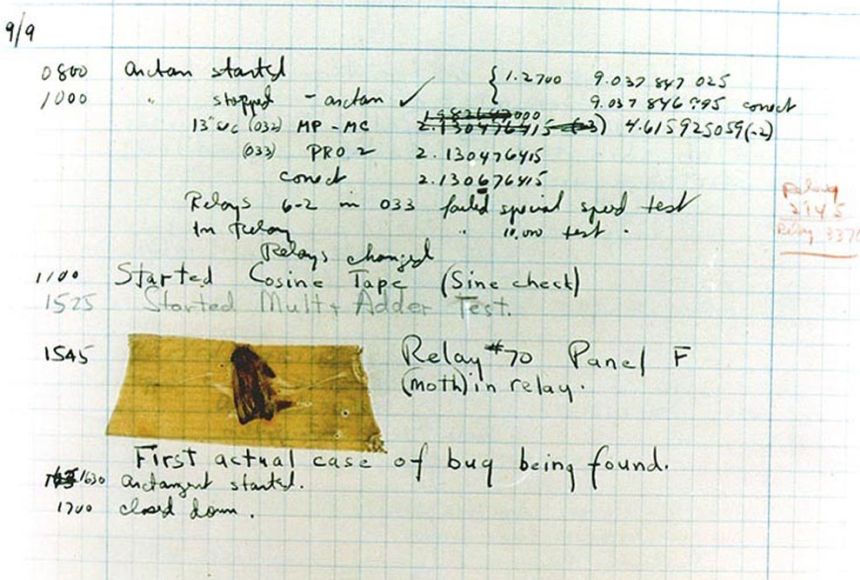 9/9
0800 arctan started { 1.2700 9.037 847 025
1000 " stopped - arctan ✓ 9.037 846 995 correct
13"uc (032) MP - MC 2.130476415 (-3) 4.615925059(-2)
(033) PRO 2 2.130476415
correct 2.130676415
Relays 6-2 in 033 failed special speed test
In Relay " 10,000 test .
Relays changed
1100 Started Cosine Tape (Sine check)
1525 Started Mult + Adder Test.
1545 Relay #70 Panel F
(moth) in relay.
First actual case of bug being found.
1630 arctangent started.
1700 closed down .
Relay
2145
Relay 3370